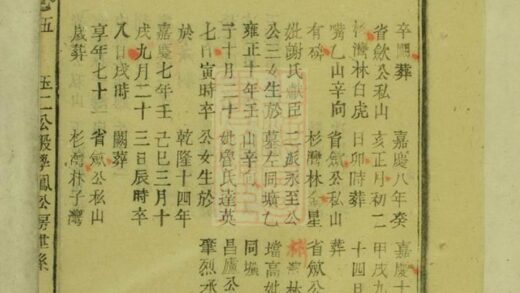 卒關葬
省歙公私山
杉灣林白虎
嘴乙山辛向
有碑
妣謝氏獻臣
公三女生於
雍正十年壬
子十月二十
七日寅時卒
於
嘉慶七年壬
戌九月二十
八日戌時
享年七十一
歲葬
嘉慶八年癸
亥正月初二
日卯時葬
省歙公私山
杉灣林金星
承至公
墓左同壙乙
山辛向
氏達英
公女生於
乾隆十四年
己巳三月十
三日辰時卒
關葬
省歙公私山
杉灣林子灣
嘉慶十
甲戌九
十四日
葬
省歙公
灣林
高妣
同壙
昌廬公
肇烈承
五
玉二公殿學鳳公房世系